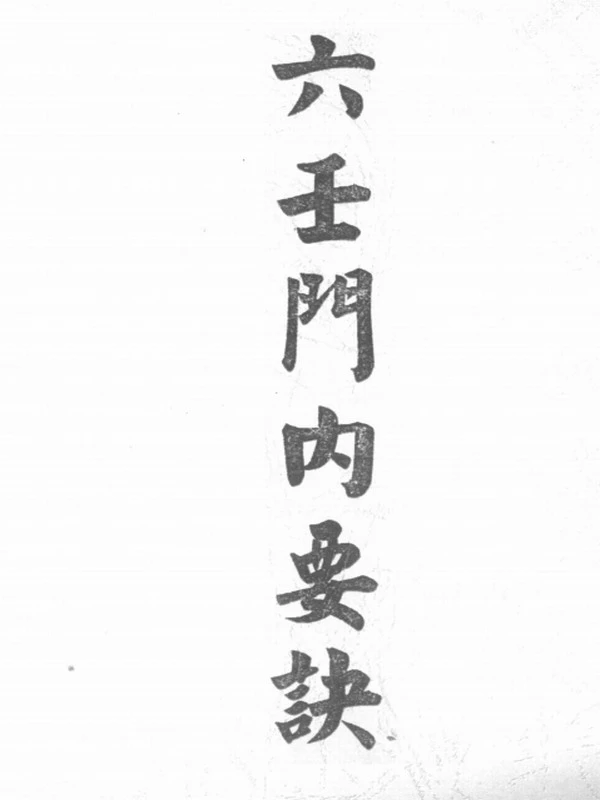 六壬門内要訣